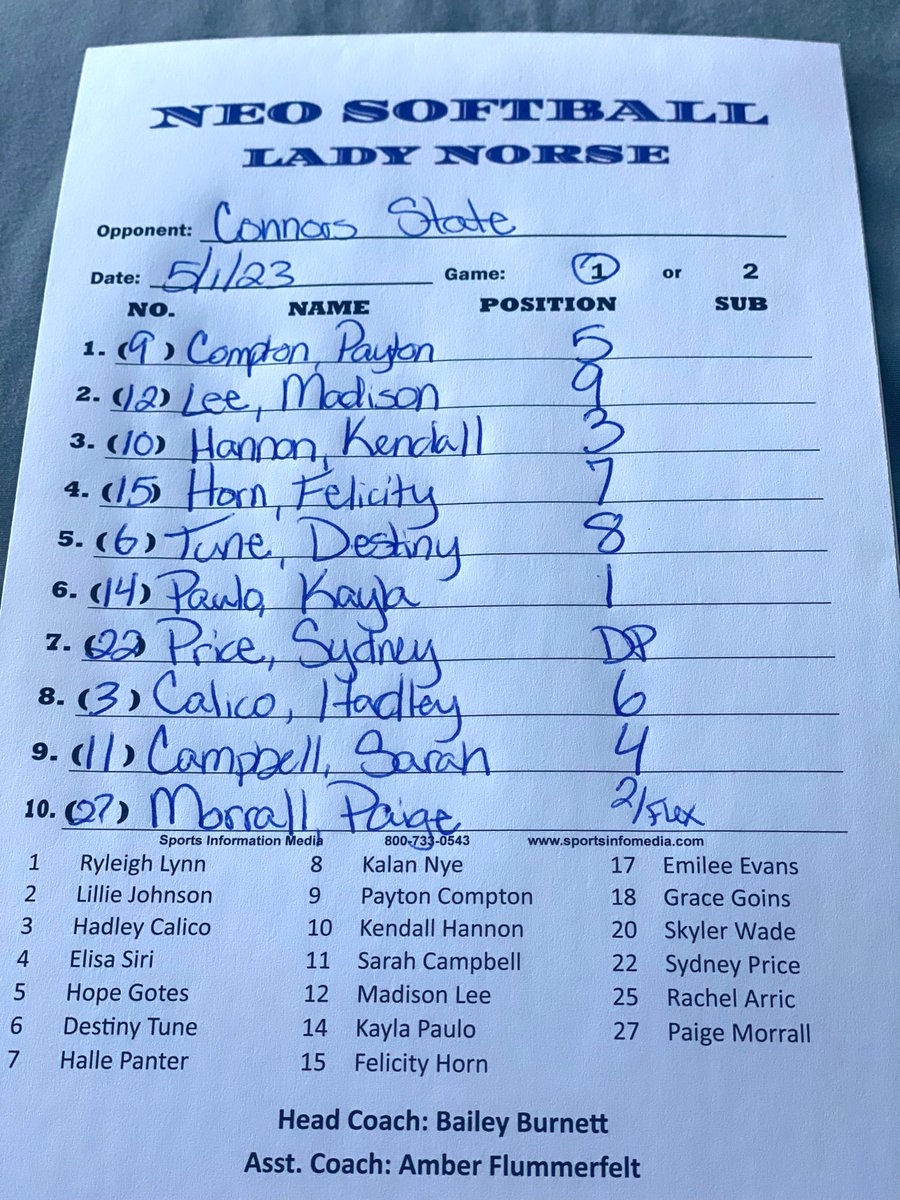 NEO SOFTBALL
LADY NORSE
Opponent: Connors State
Date: 5/1/23 Game: 1 or 2
NO. NAME POSITION SUB
1. (9) Compton, Payton 5
2. (12) Lee, Madison 9
3. (10) Hannon, Kendall 3
4. (15) Horn, Felicity 7
5. (6) Tune, Destiny 8
6. (14) Paulo, Kayla 1
7. (22) Price, Sydney DP
8. (3) Calico, Hadley 6
9. (11) Campbell, Sarah 4
10. (27) Morrall, Paige 2/Flex
Sports Information Media 800-733-0543 www.sportsinfomedia.com
1 Ryleigh Lynn 8 Kalan Nye 17 Emilee Evans
2 Lillie Johnson 9 Payton Compton 18 Grace Goins
3 Hadley Calico 10 Kendall Hannon 20 Skyler Wade
4 Elisa Siri 11 Sarah Campbell 22 Sydney Price
5 Hope Gotes 12 Madison Lee 25 Rachel Arric
6 Destiny Tune 14 Kayla Paulo 27 Paige Morrall
7 Halle Panter 15 Felicity Horn
Head Coach: Bailey Burnett
Asst. Coach: Amber Flummerfelt